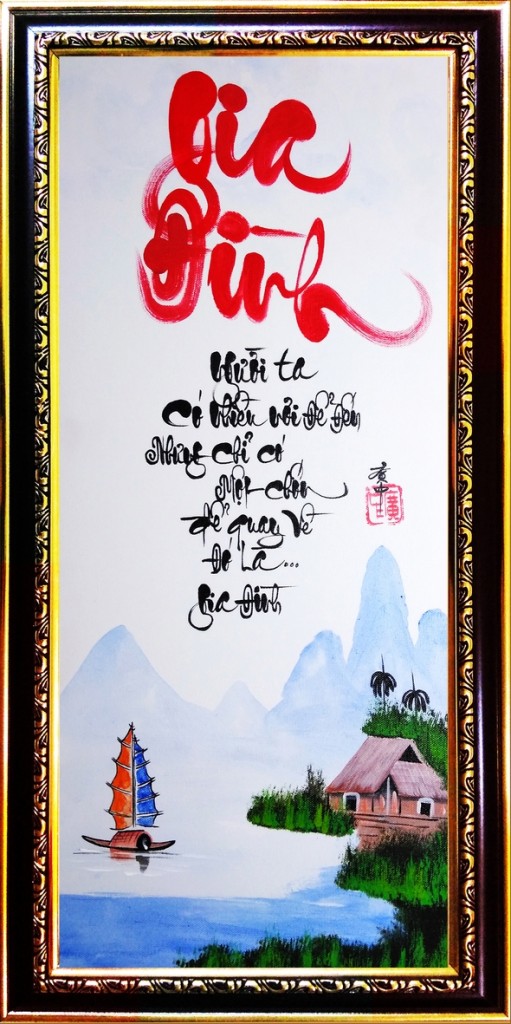 Gia
Đình
Người ta
Có Nhiều nơi Để Đến
Nhưng chỉ có
Một chốn
để quay về
Đó Là...
Gia Đình